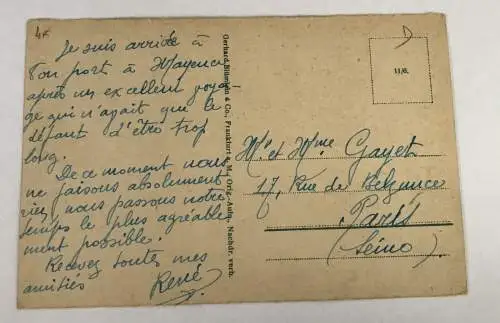 4€
Je suis arrivé à
bon port à Mayence
après un excellent voya-
ge qui n'avait que le
défaut d'être trop
long.
De ce moment nous
ne faisons absolument
rien, nous passons notre
temps le plus agréable
ment possible.
Recevez toutes mes
amitiés René
Gerhard Blümlein & Co., Frankfurt a. M. Orig.-Aufn. Nachdr. verb.
D
11/6.
Mr et Mme Gayet
17, Rue de Belzunce
Paris
(Seine)